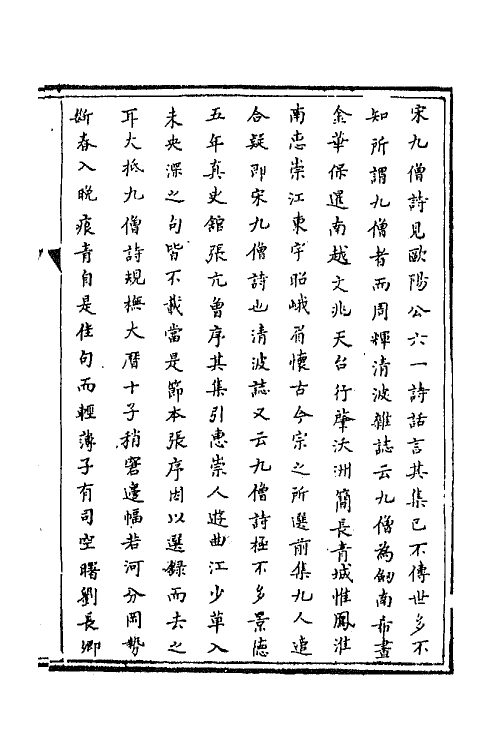 宋九僧詩見歐陽公六一詩話言其集已不傳世多不
知所謂九僧者而周輝清波雜誌云九僧為劒南希晝
金華保暹南越文兆天台行肇沃洲簡長青城惟鳳淮
南惠崇江東宇昭峨眉懷古今宗之所選前集九人適
合疑即宋九僧詩也清波誌又云九僧詩極不多景德
五年真史館張亢曾序其集引惠崇人遊曲江少草入
未央深之句皆不載當是節本張序因以選錄而去之
耳大抵九僧詩規橅大曆十子稍窘邊幅若河分岡勢
斷春入晚痕青自是佳句而輕薄子有司空曙劉長卿